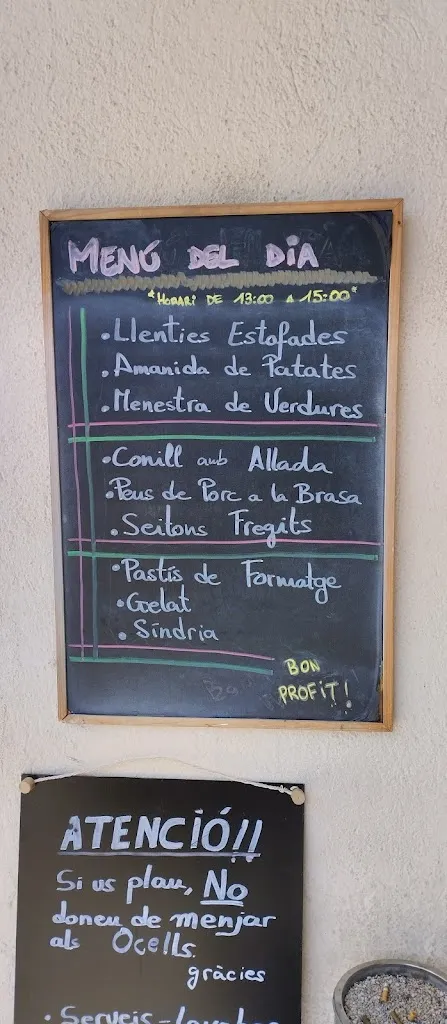 MENÚ DEL DIA
*HORARI DE 13:00 A 15:00*
• Llenties Estofades
• Amanida de Patates
• Menestra de Verdures
• Conill amb Allada
• Peus de Porc a la Brasa
• Seitons Fregits
• Pastís de Formatge
• Gelat
• Síndria
BON
PROFIT!
ATENCIÓ!!
Si us plau, No
doneu de menjar
als Ocells.
gràcies
• Serveis-